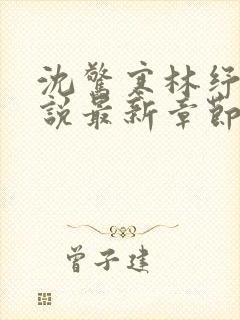 沈驚寒林纾
說最新章節
曾子建